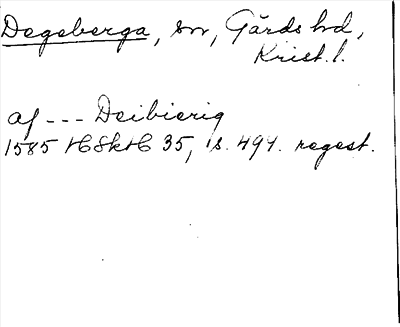 Degeberga, sn, Gärds hd,
Krist. l.
af --- Deibierig
1585 HSkH 35, s. 494. regest.